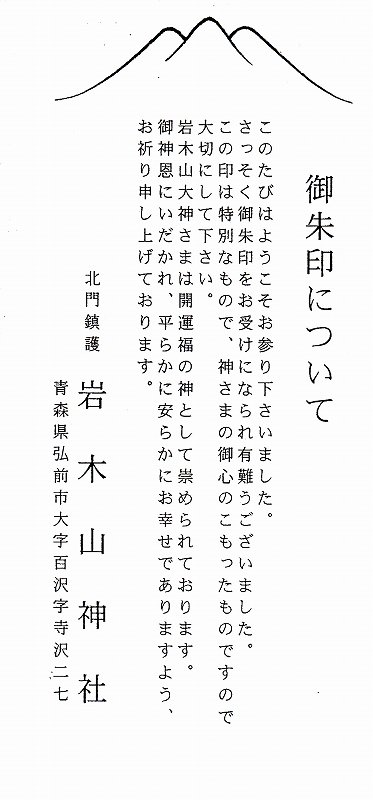 御朱印について
このたびはようこそお参り下さいました。
さっそく御朱印をお受けになられ有難うございました。
この印は特別なもので、神さまの御心のこもったものですので
大切にして下さい。
岩木山大神さまは開運福の神として崇められております。
御神恩にいだかれ、平らかに安らかにお幸せでありますよう、
お祈り申し上げております。
北門鎮護
岩木山神社
青森県弘前市大字百沢字寺沢二七